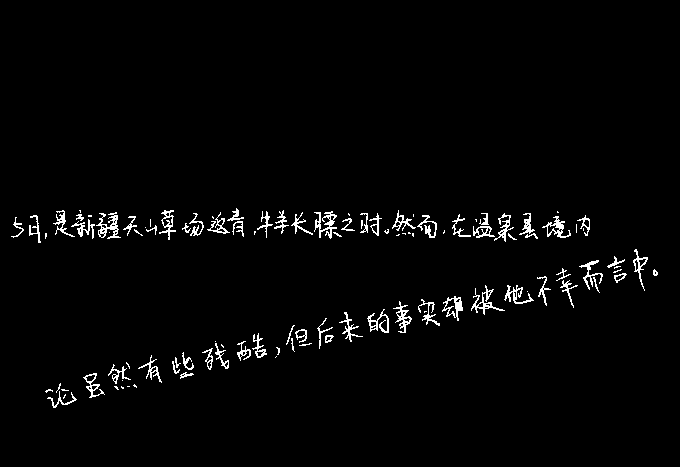 5月,是新疆天山草场返青,牛羊长膘之时。然而,在温泉县境内
论虽然有些残酷,但后来的事实却被他不幸而言中。